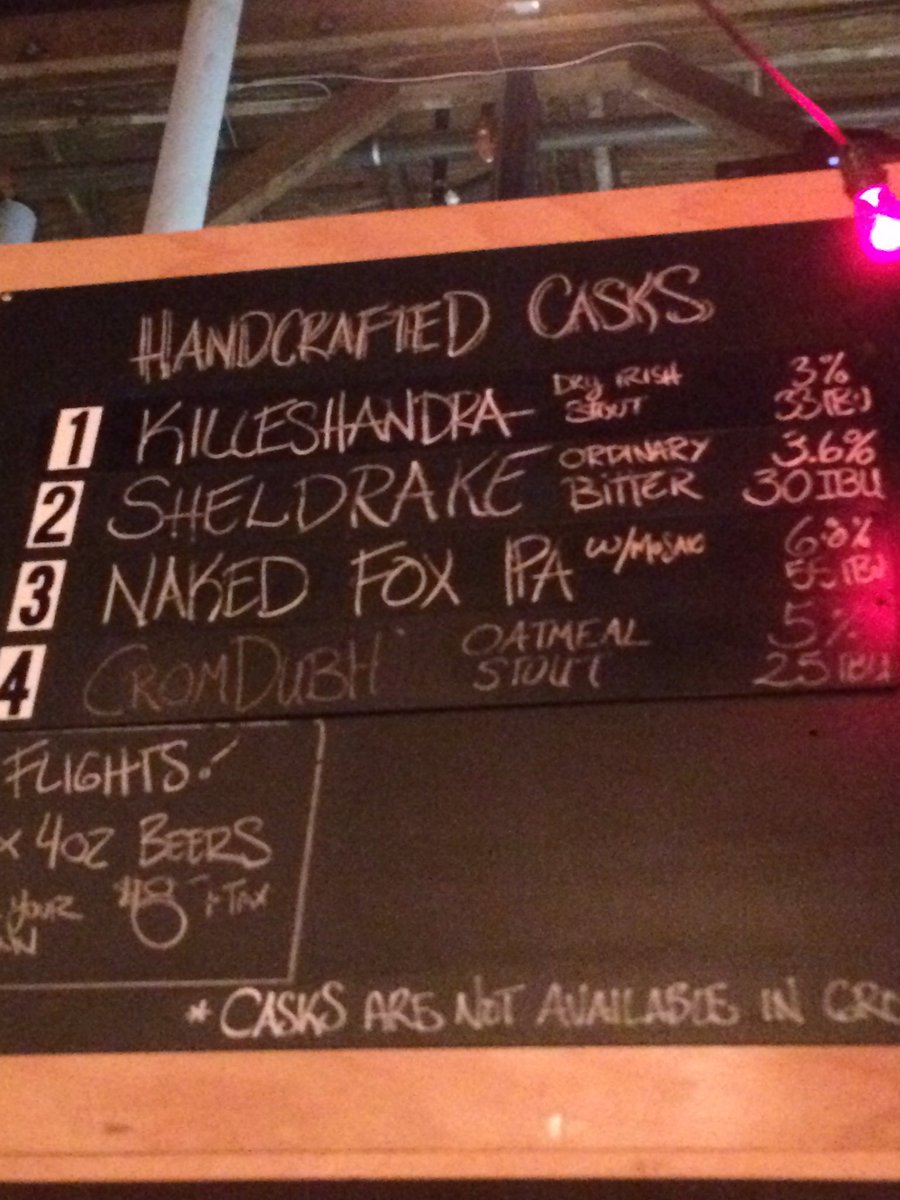 HANDCRAFTED CASKS
1 KILLESHANDRA - DRY IRISH STOUT 3% 33 IBU
2 SHELDRAKE ORDINARY BITTER 3.6% 30 IBU
3 NAKED FOX IPA W/MOSAIC 6.0% 55 IBU
4 CROMDUBH OATMEAL STOUT 5% 25 IBU
FLIGHTS!
x 4OZ BEERS
YOUR $8 + TAX
* CASKS ARE NOT AVAILABLE IN GRO